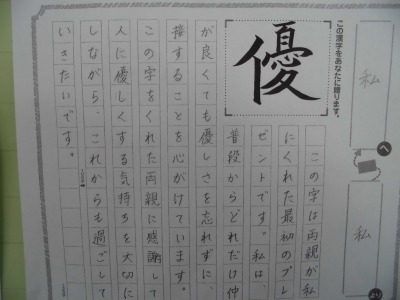 私
へ
私
より
この漢字をあなたに贈ります。
優
この字は両親が私
にくれた最初のプレ
ゼントです。私は、
普段からどれだけ仲
が良くても優しさを忘れずに、
接することを心がけています。
この字をくれた両親に感謝して
人に優しくする気持ちを大切に
しながら、これからも過ごして
いきたいです。